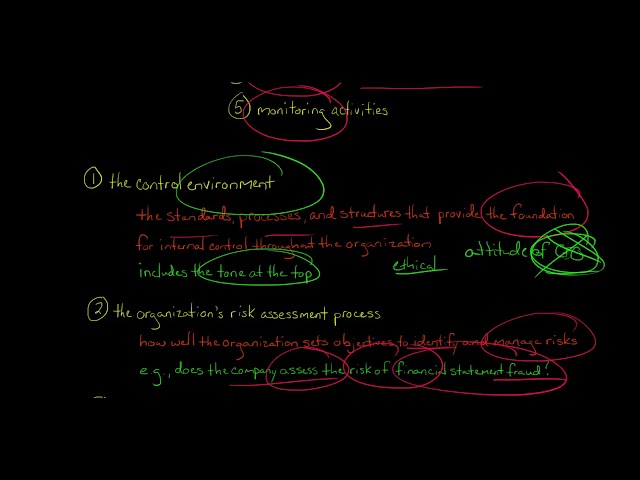 ⑤ monitoring activities
① the control environment
the standards, processes, and structures that provide the foundation
for internal control throughout the organization
includes the tone at the top
ethical
attitude of
② the organization's risk assessment process
how well the organization sets objectives to identify and manage risks
e.g., does the company assess the risk of financial statement fraud?